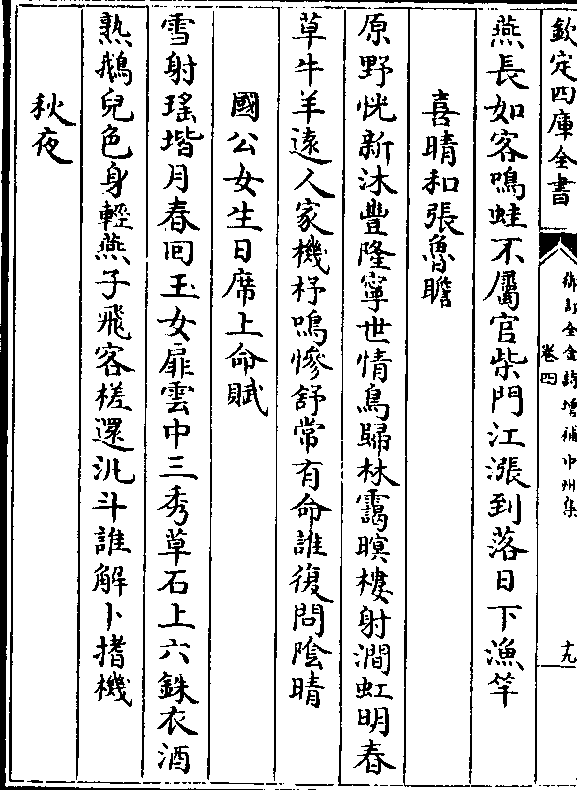 欽定四庫全書
御訂全金詩增補中州集
卷四
十九
燕長如客鳴蛙不屬官柴門江漲到落日下漁竿
喜晴和張魯瞻
原野恍新沐豐隆寧世情鳥歸林靄暝樓射澗虹明春
草牛羊遠人家機杼鳴慘舒常有命誰復問陰晴
國公女生日席上命賦
雪射瑤堦月春囘玉女扉雲中三秀草石上六銖衣酒
熟鵝兒色身輕燕子飛客槎還汎斗誰解卜搘機
秋夜